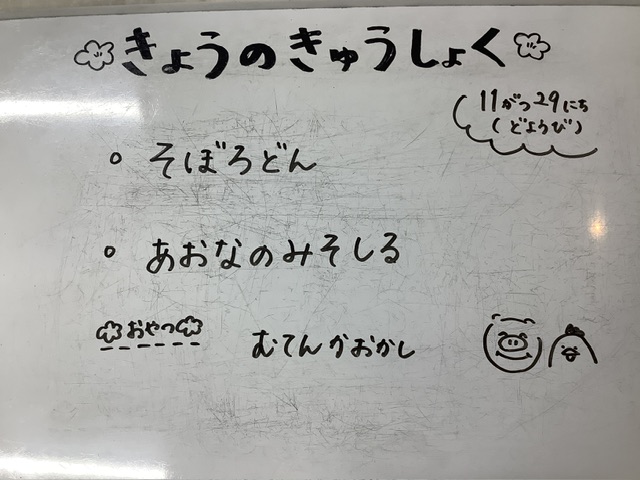 きょうのきゅうしょく
11がつ29にち
(どようび)
そぼろどん
あおなのみそしる
おやつ
むてんかおかし